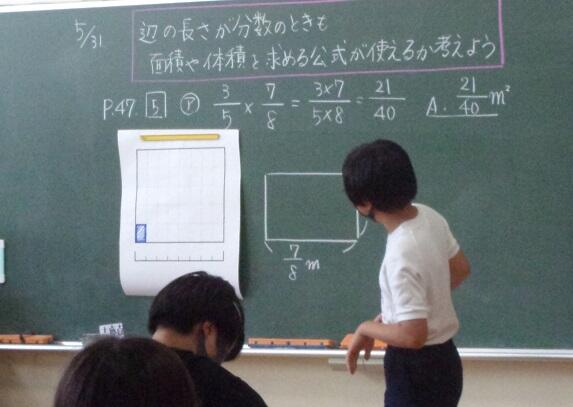 5/31
辺の長さが分数のときも
面積や体積を求める公式が使えるか考えよう
P.47. 5 ㋐ 3/5 × 7/8 = 3×7/5×8 = 21/40 A. 21/40 m²
7/8 m